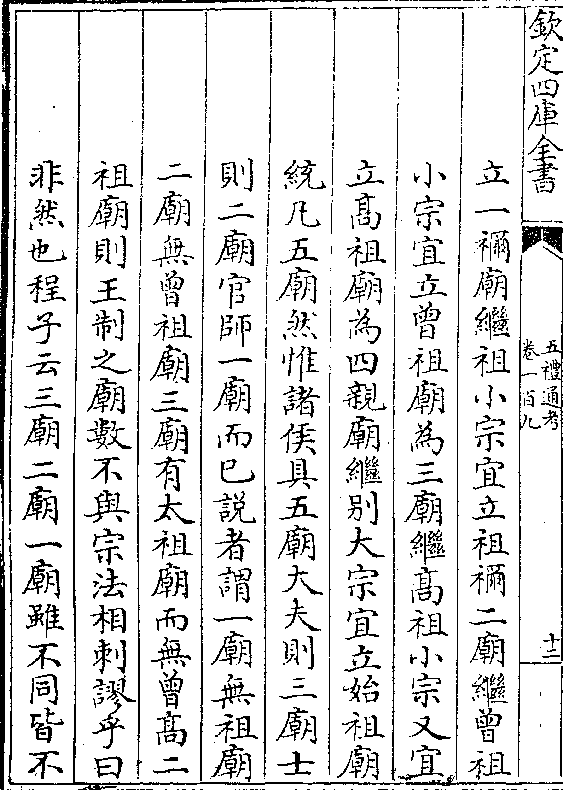 欽定四庫全書
五禮通考
卷一百九
十二
立一禰廟繼祖小宗宜立祖禰二廟繼曾祖
小宗宜立曾祖廟為三廟繼高祖小宗又宜
立髙祖廟為四親廟繼别大宗宜立始祖廟
統凡五廟然惟諸侯具五廟大夫則三廟士
則二廟官師一廟而已説者謂一廟無祖廟
二廟無曾祖廟三廟有太祖廟而無曾髙二
祖廟則王制之廟數不與宗法相刺謬乎曰
非然也程子云三廟二廟一廟雖不同皆不